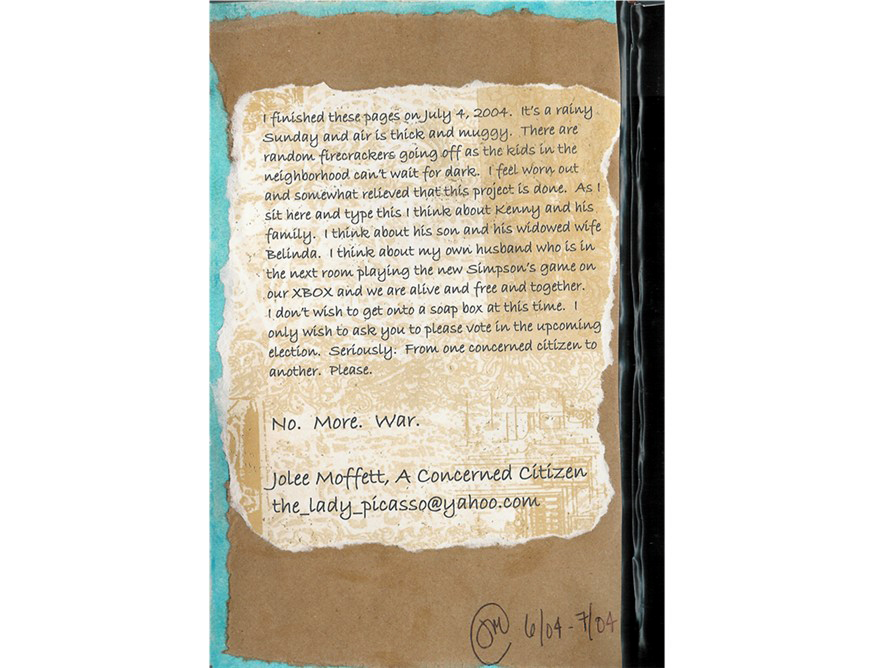 I finished these pages on July 4, 2004. It's a rainy
Sunday and air is thick and muggy. There are
random firecrackers going off as the kids in the
neighborhood can't wait for dark. I feel worn out
and somewhat relieved that this project is done. As I
sit here and type this I think about Kenny and his
family. I think about his son and his widowed wife
Belinda. I think about my own husband who is in
the next room playing the new Simpson's game on
our XBOX and we are alive and free and together.
I don't wish to get onto a soap box at this time. I
only wish to ask you to please vote in the upcoming
election. Seriously. From one concerned citizen to
another. Please.
No. More. War.
Jolee Moffett, A Concerned Citizen
the_lady_picasso@yahoo.com
JM 6/04-7/04